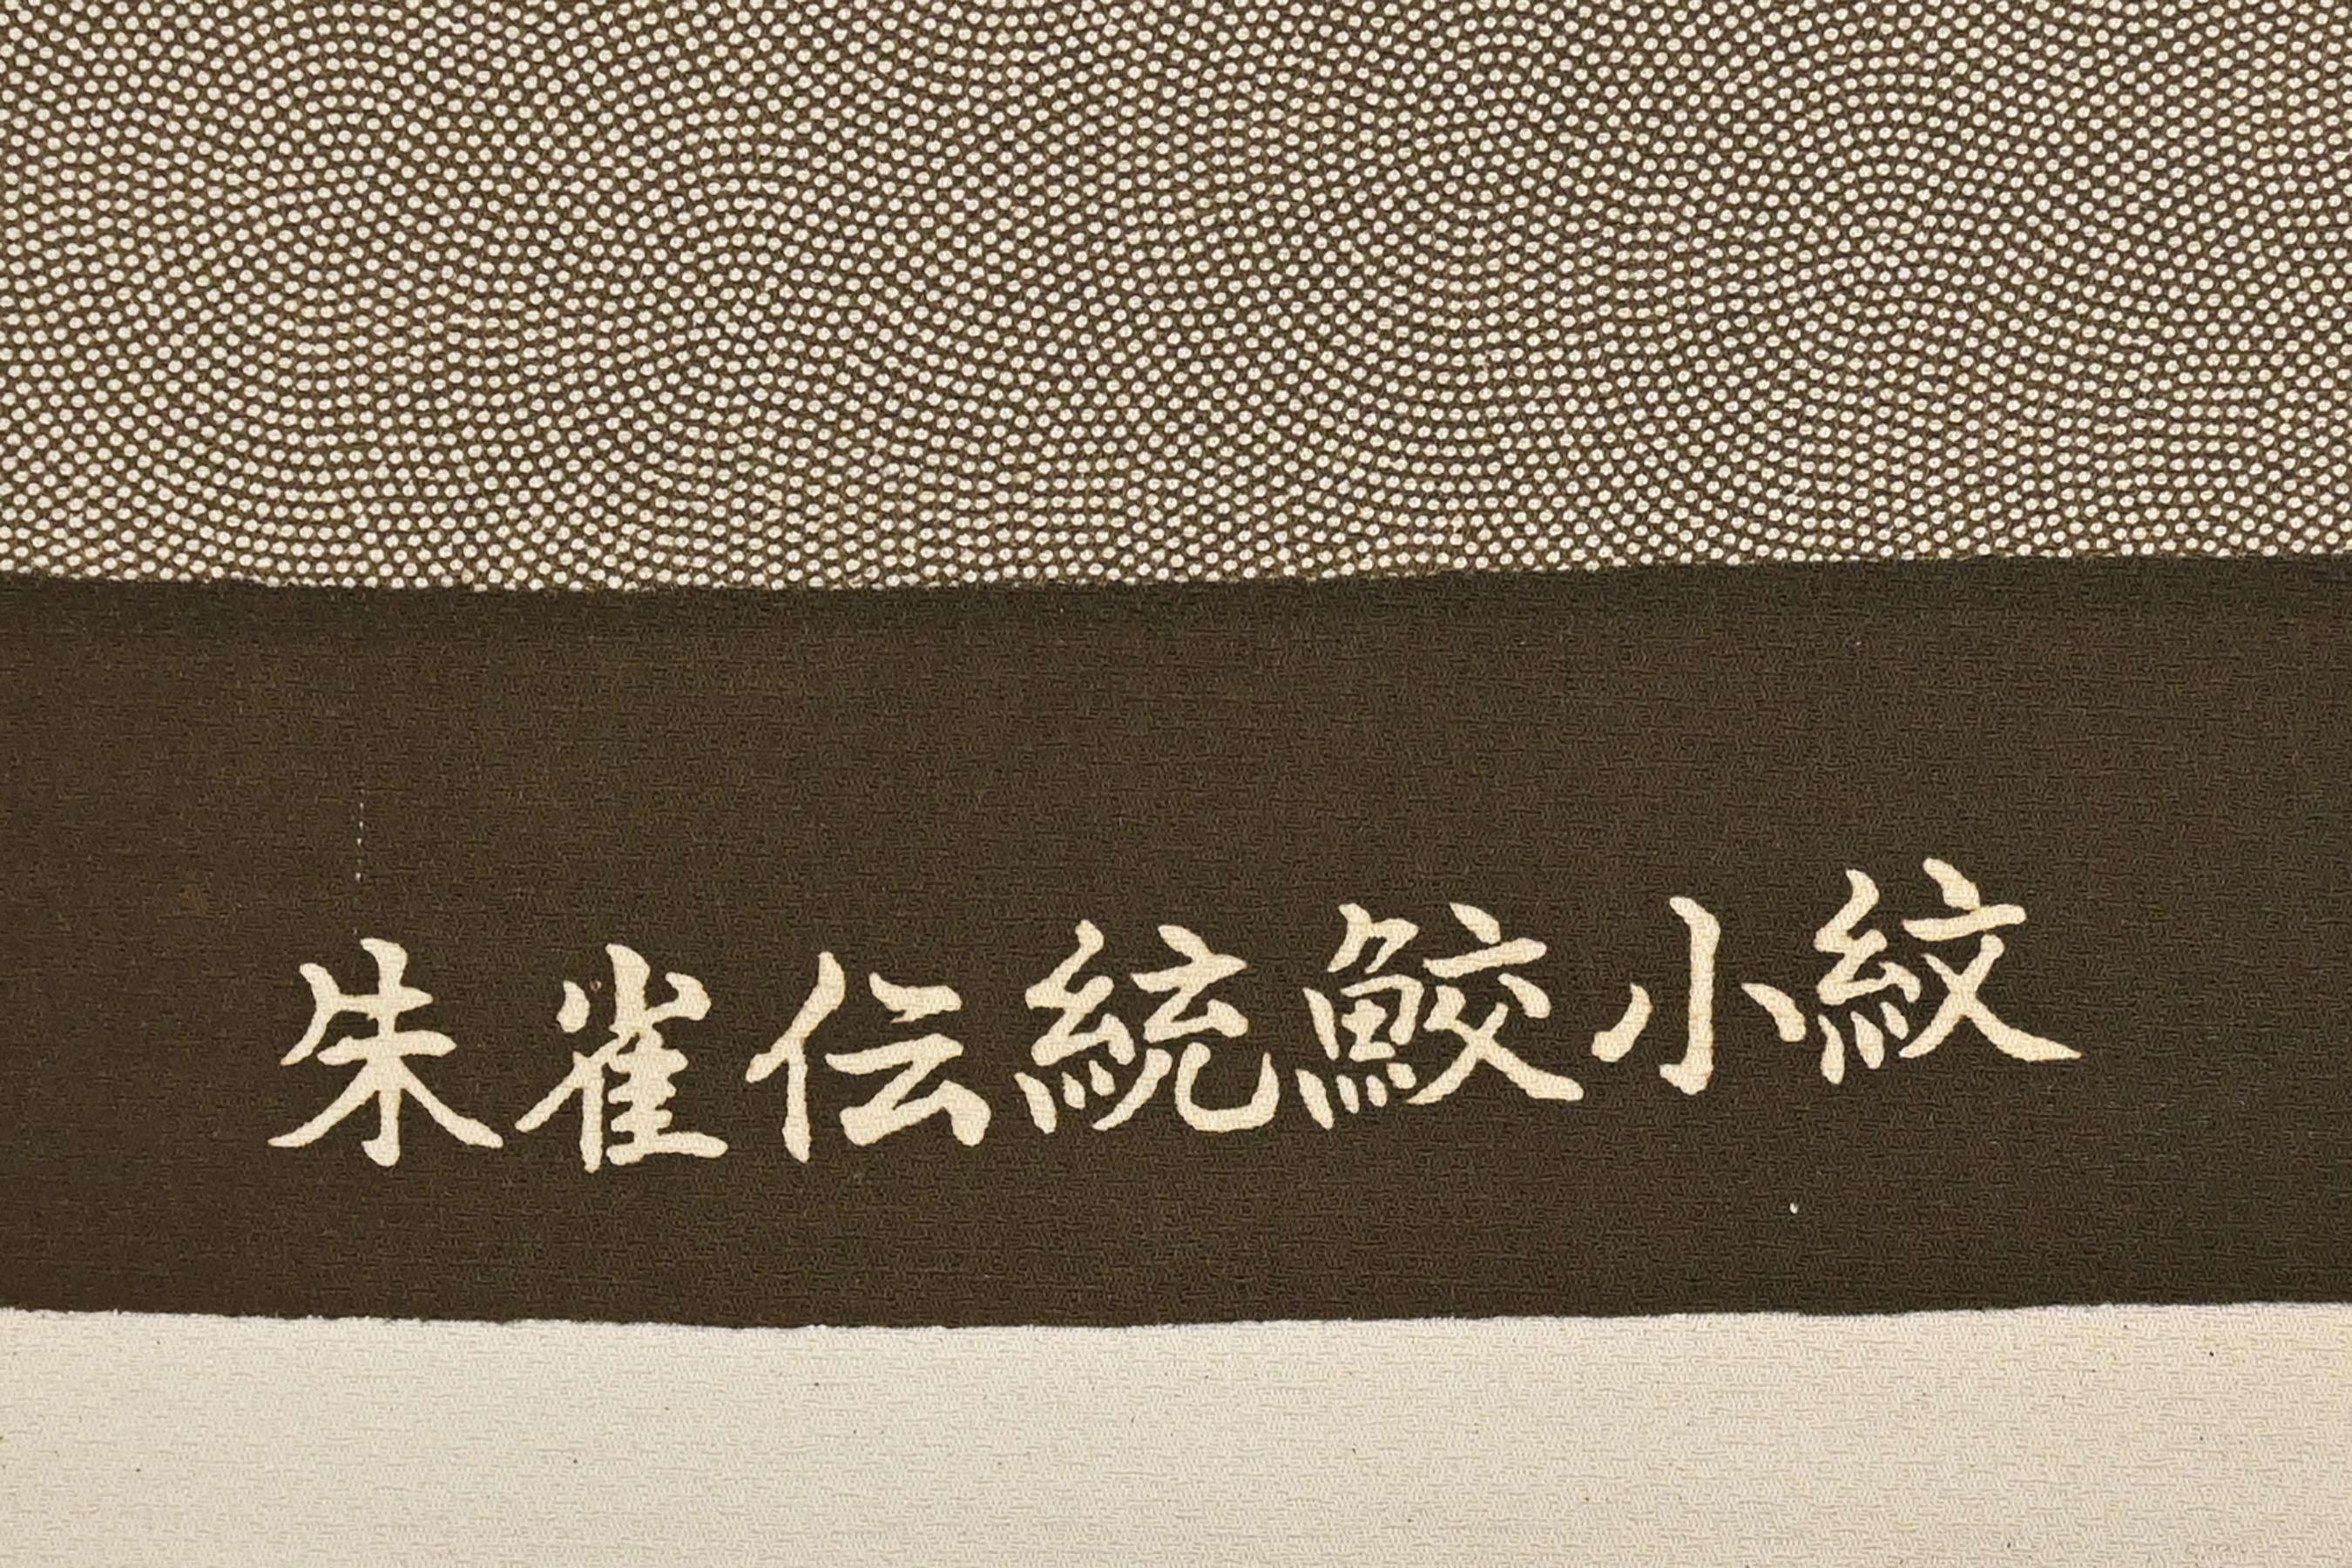 朱雀伝統鮫小紋